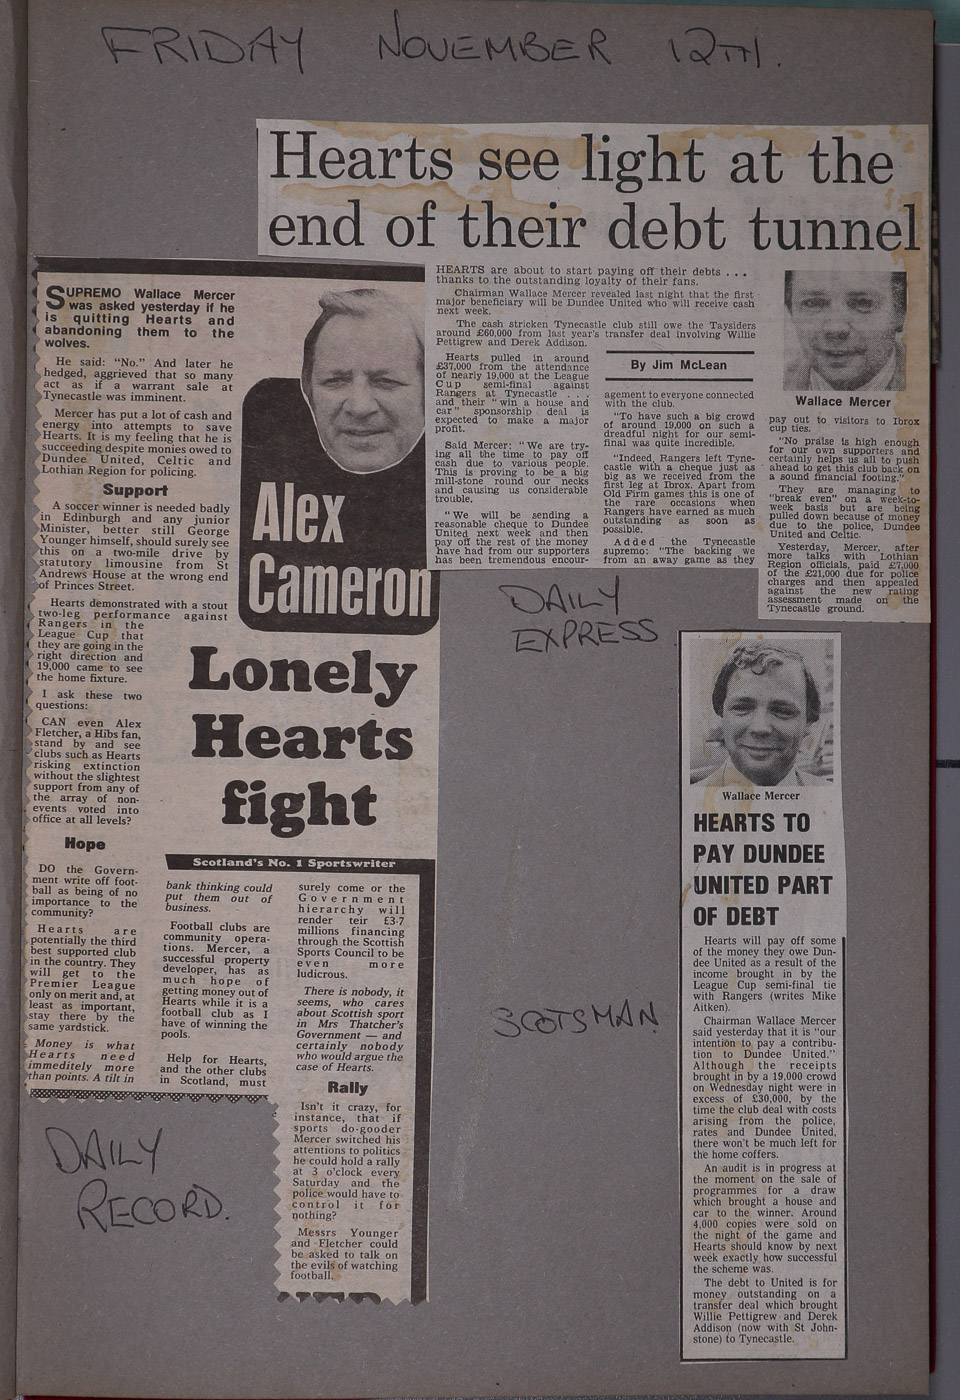 FRIDAY NOVEMBER 12TH.
Hearts see light at the
end of their debt tunnel
HEARTS are about to start paying off their debts . . .
thanks to the outstanding loyalty of their fans.
Chairman Wallace Mercer revealed last night that the first
major beneficiary will be Dundee United who will receive cash
next week.
The cash stricken Tynecastle club still owe the Taysiders
around £60,000 from last year's transfer deal involving Willie
Pettigrew and Derek Addison.
Hearts pulled in around
£37,000 from the attendance
of nearly 19,000 at the League
Cup semi-final against
Rangers at Tynecastle . . .
and their "win a house and
car" sponsorship deal is
expected to make a major
profit.
Said Mercer: "We are try-
ing all the time to pay off
cash due to various people.
This is proving to be a big
mill-stone round our necks
and causing us considerable
trouble.
"We will be sending a
reasonable cheque to Dundee
United next week and then
pay off the rest of the money
have had from our supporters
has been tremendous encour-
By Jim McLean
agement to everyone connected
with the club.
"To have such a big crowd
of around 19,000 on such a
dreadful night for our semi-
final was quite incredible.
"Indeed, Rangers left Tyne-
castle with a cheque just as
big as we received from the
first leg at Ibrox. Apart from
Old Firm games this is one of
the rare occasions when
Rangers have earned as much
outstanding as soon as
possible.
Added the Tynecastle
supremo: "The backing we
from an away game as they
Wallace Mercer
pay out to visitors to Ibrox
cup ties.
"No praise is high enough
for our own supporters and
certainly helps us all to push
ahead to get this club back on
a sound financial footing."
They are managing to
"break even" on a week-to-
week basis but are being
pulled down because of money
due to the police, Dundee
United and Celtic.
Yesterday, Mercer, after
more talks with Lothian
Region officials, paid £7,000
of the £21,000 due for police
charges and then appealed
against the new rating
assessment made on the
Tynecastle ground.
DAILY
EXPRESS
SUPREMO Wallace Mercer
was asked yesterday if he
is quitting Hearts and
abandoning them to the
wolves.
He said: "No." And later he
hedged, aggrieved that so many
act as if a warrant sale at
Tynecastle was imminent.
Mercer has put a lot of cash and
energy into attempts to save
Hearts. It is my feeling that he is
succeeding despite monies owed to
Dundee United, Celtic and
Lothian Region for policing.
Support
A soccer winner is needed badly
in Edinburgh and any junior
Minister, better still George
Younger himself, should surely see
this on a two-mile drive by
statutory limousine from St
Andrews House at the wrong end
of Princes Street.
Hearts demonstrated with a stout
two-leg performance against
Rangers in the
League Cup that
they are going in the
right direction and
19,000 came to see
the home fixture.
I ask these two
questions:
CAN even Alex
Fletcher, a Hibs fan,
stand by and see
clubs such as Hearts
risking extinction
without the slightest
support from any of
the array of non-
events voted into
office at all levels?
Hope
DO the Govern-
ment write off foot-
ball as being of no
importance to the
community?
Hearts are
potentially the third
best supported club
in the country. They
will get to the
Premier League
only on merit and, at
least as important,
stay there by the
same yardstick.
Money is what
Hearts need
immeditely more
than points. A tilt in
Alex
Cameron
Lonely
Hearts
fight
Scotland's No. 1 Sportswriter
bank thinking could
put them out of
business.
Football clubs are
community opera-
tions. Mercer, a
successful property
developer, has as
much hope of
getting money out of
Hearts while it is a
football club as I
have of winning the
pools.
Help for Hearts,
and the other clubs
in Scotland, must
surely come or the
Government
hierarchy will
render teir £3·7
millions financing
through the Scottish
Sports Council to be
even more
ludicrous.
There is nobody, it
seems, who cares
about Scottish sport
in Mrs Thatcher's
Government — and
certainly nobody
who would argue the
case of Hearts.
Rally
Isn't it crazy, for
instance, that if
sports do-gooder
Mercer switched his
attentions to politics
he could hold a rally
at 3 o'clock every
Saturday and the
police would have to
control it for
nothing?
Messrs Younger
and Fletcher could
be asked to talk on
the evils of watching
football.
DAILY
RECORD.
Wallace Mercer
HEARTS TO
PAY DUNDEE
UNITED PART
OF DEBT
Hearts will pay off some
of the money they owe Dun-
dee United as a result of the
income brought in by the
League Cup semi-final tie
with Rangers (writes Mike
Aitken).
Chairman Wallace Mercer
said yesterday that it is "our
intention to pay a contribu-
tion to Dundee United."
Although the receipts
brought in by a 19,000 crowd
on Wednesday night were in
excess of £30,000, by the
time the club deal with costs
arising from the police,
rates and Dundee United,
there won't be much left for
the home coffers.
An audit is in progress at
the moment on the sale of
programmes for a draw
which brought a house and
car to the winner. Around
4,000 copies were sold on
the night of the game and
Hearts should know by next
week exactly how successful
the scheme was.
The debt to United is for
money outstanding on a
transfer deal which brought
Willie Pettigrew and Derek
Addison (now with St John-
stone) to Tynecastle.
SCOTSMAN